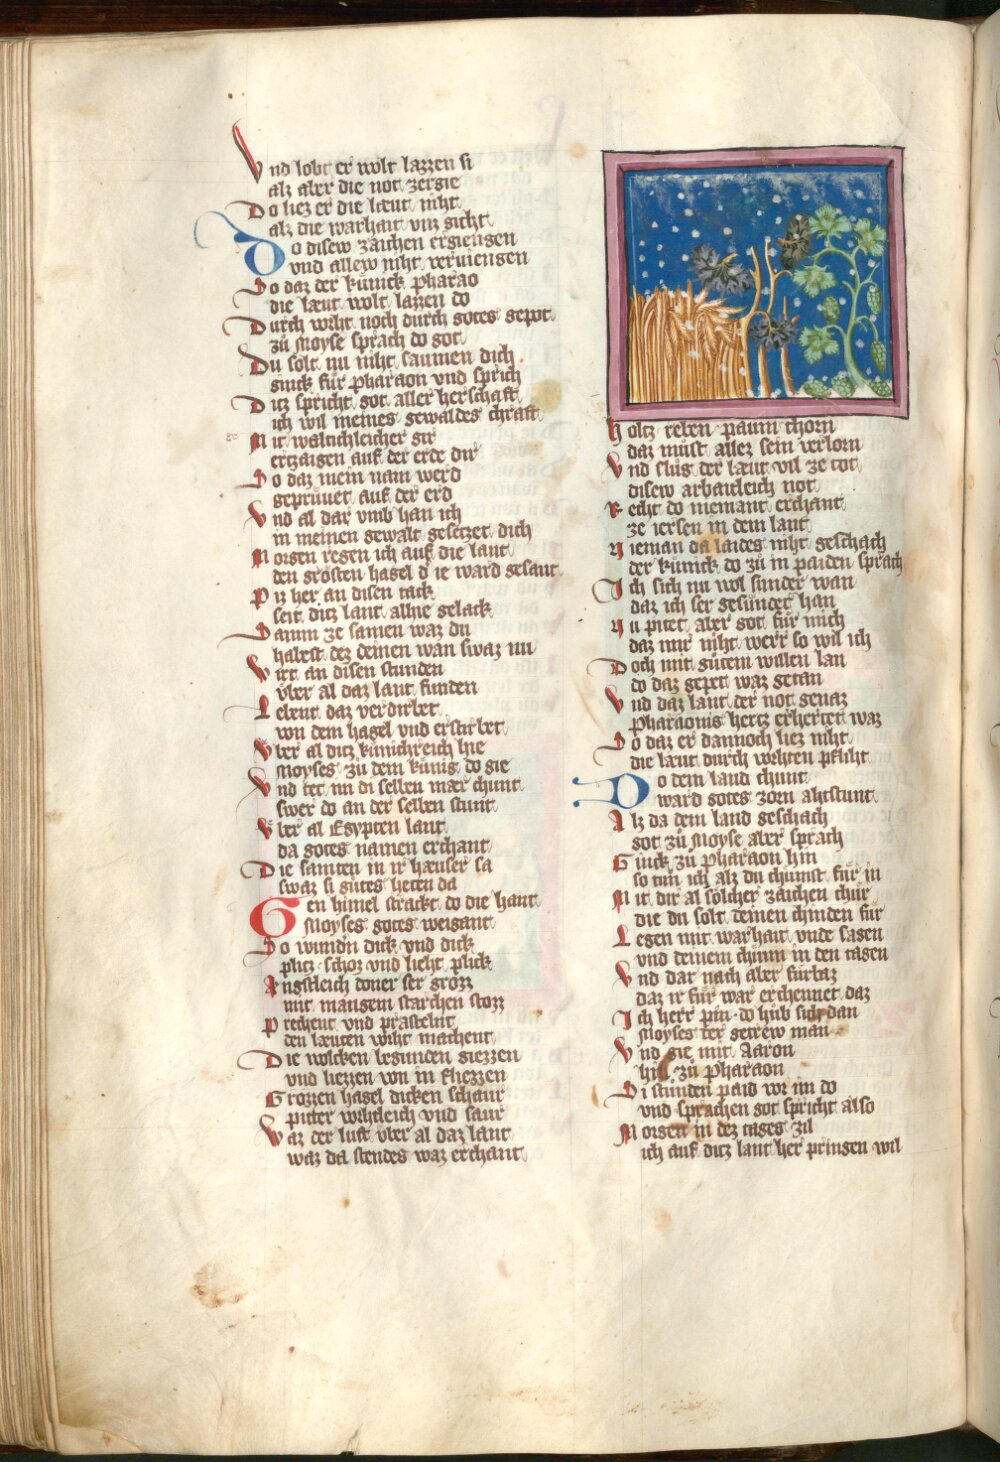 Vnd lobt er wolt lazzen si
alz aber die not zergie
Do liez er die læut niht
alz die warhait vnz giht
Do disew zaichen ergiengen
vnd allew niht verviengen
So daz der kůnick pharao
die læut wolt lazzen do
Durch wiht noch durch gotes gepot
zů Moyse sprach do got
Du solt nu niht saumen dich
ginck für pharaon vnd sprich
Ditz spricht got aller herschaft
ich wil meines gewaldes chraft
Mit weltichleicher gir
ertzaigen auf der erde dir
So daz mein nam werd
geprüuet auf der erd
Vnd al dar vmb han ich
in meinen gewalt gesetzet dich
Morgen regen ich auf die lant
den grösten hagel d ie ward gesant
Piz her an disen tack
seit ditz lant alhie gelack
Darum ze samen waz du
habest dez deinen wan swaz nu
Wirt an disen stunden
vber al daz lant funden
Lebent daz verdirbet
von dem hagel vnd erstirbet
Vber al ditz künichreich hie
Moyses zů dem künig do gie
Vnd tet im di selben mær chunt
swer do an der selben stunt
Vber al Egypten lant
da gotes namen erchant
Die samten in ir hæuser sa
swaz si gůtes heten da
Gen himel strackt do die hant
Moyses gotes weigant
Do wurdn dick vnd dick
plitz schoz vnd lieht plick
Angstleich doner ser grozz
mit mangem starchen stozz
Prechent vnd prastelnt
den læuten wiht machent
Die wolcken begunden giezzen
vnd liezzen von in fliezzen
Grozzen hagel dicken schaur
pitter wihtleich vnd saur
Waz der luft vber al daz lant
waz da stendes waz erchant
Holtz reben paum chorn
daz můst allez sein verlorn
Vnd slůg der læut vil ze tot
disew arbaitleich not
Recht do niemant erchant
ze iersen in dem lant
Nieman da laides niht geschach
der künick do zů in paiden sprach
Ich sich nu wol sunder wan
daz ich ser gesündet han
Nu pitet aber got für mich
daz mir niht werr so wil ich
Doch mit gůtem willen lan
do daz gepet waz getan
Vnd daz lant der not genaz
Pharaonis hertz erhertet waz
So daz er dannoch liez niht
die læut durch wehten pfliht
Do dem land chunt
ward gotes zorn ahtstunt
Alz da dem land geschach
got zů Moyse aber sprach
Ginck zů pharaon hin
so tůn ich alz du chumst für in
Mit dir al sölcher zaichen chür
die du solt deinen chinden für
Legen mit warhait vnde sagen
vnd deinem chünn in den tagen
Vnd dar nach aber fürbaz
daz ir für war erchennet daz
Ich herr pin do hůb sich dan
Moyses der getrew man
Vnd gie mit Aaron
hin zů pharaon
Di stunden paid vor im do
vnd sprachen got spricht also
Morgen in dez tages zil
ich auf ditz lant her pringen wil